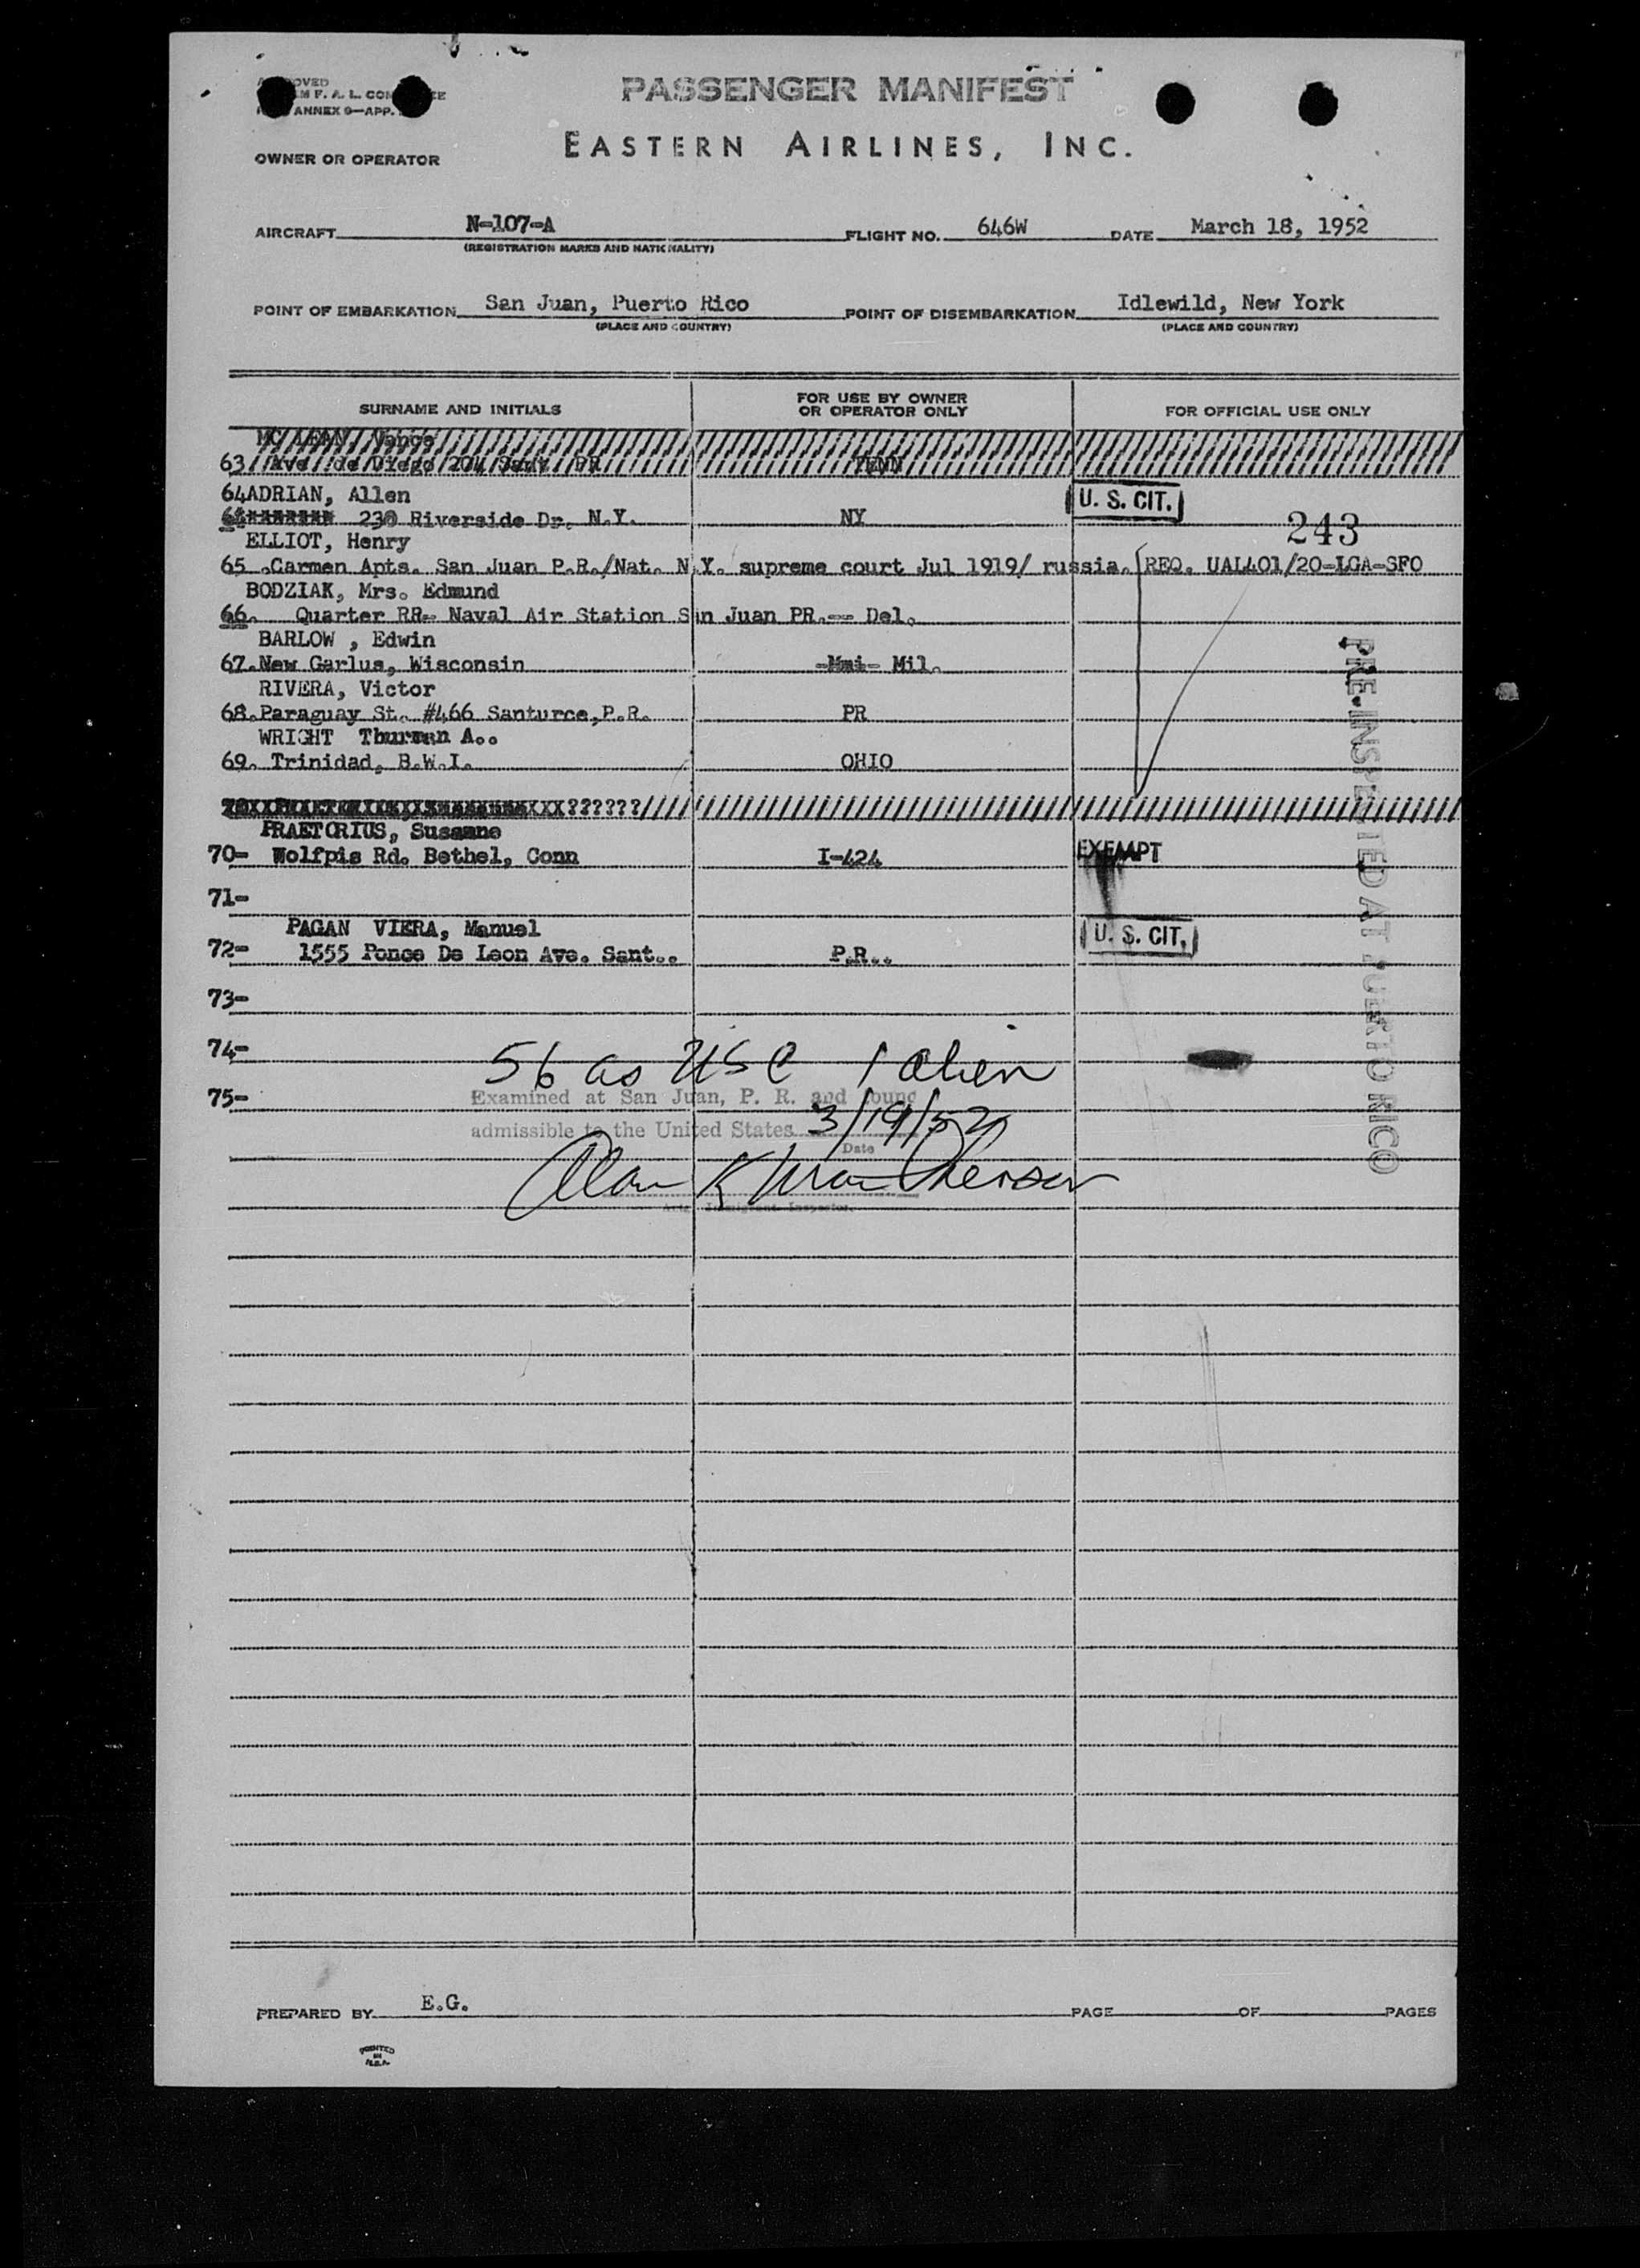 PASSENGER MANIFEST
EASTERN AIRLINES, INC.
ANNEX 9—APP.
OWNER OR OPERATOR
AIRCRAFT N-107-A FLIGHT NO. 646W DATE March 18, 1952
(REGISTRATION MARKS AND NATIONALITY)
POINT OF EMBARKATION San Juan, Puerto Rico POINT OF DISEMBARKATION Idlewild, New York
(PLACE AND COUNTRY) (PLACE AND COUNTRY)
SURNAME AND INITIALS FOR USE BY OWNER OR OPERATOR ONLY FOR OFFICIAL USE ONLY
MC LEAN, Vance
63 Ave de Diego 204 Sant. PR TENN
64 ADRIAN, Allen U. S. CIT.
230 Riverside Dr. N.Y. NY 243
ELLIOT, Henry
65 .Carmen Apts. San Juan P.R./Nat. N.Y. supreme court Jul 1919/ russia. REQ. UAL401/20-LGA-SFO
BODZIAK, Mrs. Edmund
66. Quarter RR- Naval Air Station San Juan PR.-- Del.
BARLOW , Edwin
67.New Garlus, Wisconsin Mil.
RIVERA, Victor
68.Paraguay St. #466 Santurce,P.R. PR
WRIGHT Thurman A..
69. Trinidad, B.W.I. OHIO
PRAETORIUS, Susanne
70- Wolfpis Rd. Bethel, Conn I-424 EXEMPT
71-
PAGAN VIERA, Manuel
72- 1555 Ponce De Leon Ave. Sant.. P.R.. U. S. CIT.
73-
74-
56 as USC 1 alien
75-
Examined at San Juan, P. R. and found
admissible to the United States 3/19/52
Date
Immigrant Inspector.
PRE-INSPECTED AT PUERTO RICO
PREPARED BY E.G. PAGE OF PAGES
PRINTED
IN
U.S.A.